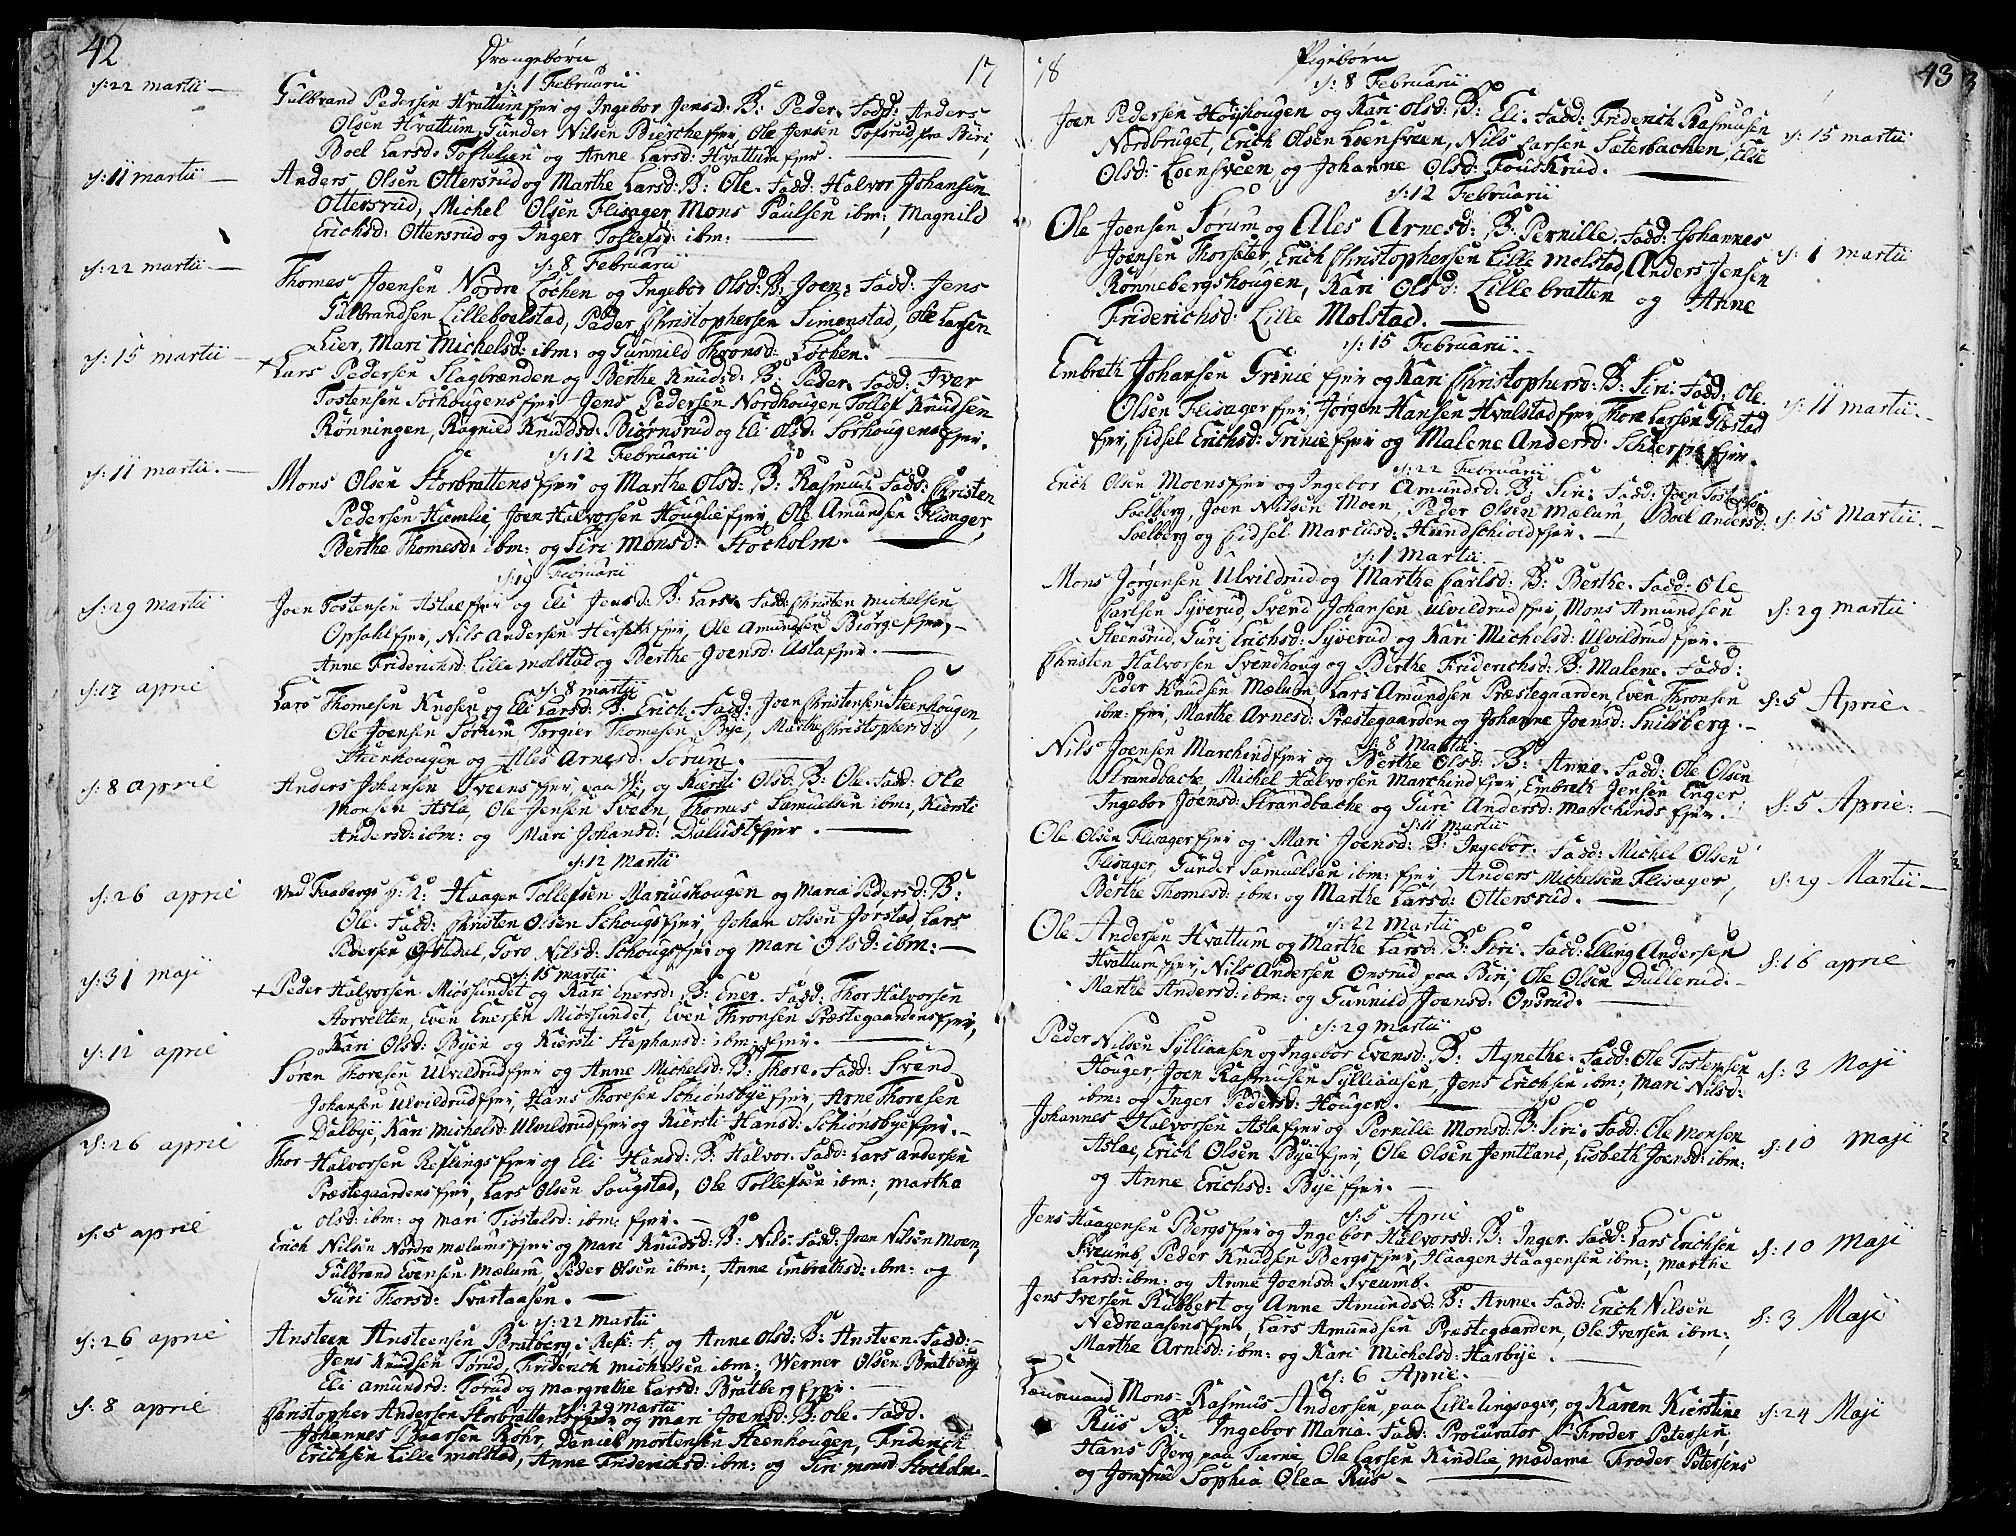 42
Drængebørn
17
d: 1 Februarii
d: 22 martii —
Gulbrand Pedersen Hvattumsejer og Ingebor Jensd: B: Peder. Fadd: Anders
Olsen Hvattum, Gunder Nilsen Bierche ejer, Ole Jensen Tofsrud fra Biri,
Boel Larsd: Toftelsen og Anne Larsd: Hvattumejer.
d: 11 martii —
Anders Olsen Ottersrud og Marthe Larsd: B: Ole. Fadd: Halvor Johansen
Ottersrud, Michel Olsen Flisager, Mons Paulsen ibm:, Magnild
Erichsd: Ottersrud og Inger Tollefsd: ibm:
d: 8 Februarii
d: 22 martii —
Thomes Joensen Nordre Løchen og Ingebor Olsd: B: Joen. Fadd: Jens
Gulbrandsen Lilleboelstad, Peder Christophersen Simenstad, Ole Larsen
Lier, Mari Michelsd: ibm: og Gunnild Thronsd: Løchen.
d: 15 martii —
+ Lars Pedersen Slagbrænden og Berthe Knudsd: B: Peder. Fadd: Iver
Tostensen Sørhougens ejer, Jens Pedersen Nordhougen, Tollef Knudsen
Rønningen, Ragnild Knudsd: Biørnsrud og Eli Olsd: Sørhougens ejer.
d: 12 Februarii
d: 11 martii. —
Mons Olsen Storbrattens ejer og Marthe Olsd: B: Rasmus. Fadd: Christen
Pedersen Humlie, Joen Halvorsen Houglie ejer, Ole Amundsen Flisager,
Berthe Thomesd: ibm: og Siri Monsd: Stocholm.
d: 19 Februarii
d: 29 martii
Joen Tostensen Aslaeejer og Eli Jensd: B: Lars. Fadd: Christen Michelsen
Opsahl ejer, Nils Andersen Herseth ejer, Ole Amundsen Biørge ejer,
Anne Friderichsd: Lille Molstad og Berthe Joensd: Asla ejer.
d: 8 martii
d: 17 april
Lars Thomesen Knosen og Eli Larsd: B: Erich. Fadd: Joen Christensen Steenhougen,
Ole Joensen Sørum, Torgier Thomesen Bye, Marthe Christophersd:
Steenhougen og Ales Arnesd: Sørum.
d: 8 april
Anders Johansen Sveens ejer, paa og Kiersti Olsd: B: Ole. Fadd: Ole
Monsen Asla, Ole Jensen Sveen, Thomes Samuelsen ibm:, Kiersti
Andersd: ibm: og Mari Johansd: Dulust ejer.
d: 12 martii
d: 26 april
Ved Faabergs Haagen Tollefsen Mariushougen og Maria Pedersd: B:
Ole. Fadd: Christen Olsen Schougs ejer, Johan Olsen Jørstad, Lars
Pedersen Goro Nilsd: Schougs ejer og Mari Olsd: ibm:
d: 15 martii
d: 31 maji
+ Peder Halvorsen Miøssundet og Kari Enersd: B: Ener. Fadd: Thor Halvorsen
Storvelten, Even Enersen Miøssundet, Even Thronsen Præstegaardens ejer,
Kari Olsd: Byen og Kiersti Stephansd: ibm: ejer.
d: 12 april
Søren Thoresen Ulvildrud ejer og Anne Michelsd: B: Thore. Fadd: Svend
Johansen Ulvildrud ejer, Hans Thoresen Schiønsbye ejer, Arne Thoresen
Dalbye, Kari Michelsd: Ulvildrud ejer og Kiersti Hansd: Schiønsbye ejer.
d: 26 april
Thor Halvorsen Reflings ejer og Eli Hansd: B: Halvor. Fadd: Lars Andersen
Præstegaardens ejer, Lars Olsen Sougstad, Ole Tollefsen ibm:, Marthe
Olsd: ibm: og Mari Tiøstelsd: ibm: ejer.
d: 5 april
Erich Nilsen Nordre Mælums ejer og Mari Knudsd: B: Nils. Fadd: Joen Nilsen Moen,
Gulbrand Evensen Mælum, Peder Olsen ibm:, Anne Embrethsd: ibm: og
Guri Thorsd: Svartaasen.
d: 22 martii
d: 26 april
Ansteen Ansteensen Bratberg i og Anne Olsd: B: Ansteen. Fadd:
Jens Knudsen Torud, Friderich Michelsen ibm:, Werner Olsen Bratberg
Eli Amundsd: Torud og Margrethe Larsd: Bratberg ejer.
d: 29 martii
d: 8 april
Christopher Andersen Storbrattens ejer og Mari Joensd: B: Ole. Fadd.
Johannes Baarsen Rohr, Daniel Mortensen Steenhougen, Friderich
Erichsen Lille Molstad, Anne Friderichsd: ibm: og Siri Monsd Stocholm.
18
Pigebørn
43
d: 8 Februarii
Joen Pedersen Høyshougen og Kari Olsd: B: Eli. Fadd: Friderich Rasmusen
Nordbruget, Erich Olsen Loensveen, Nils Larsen Sæterbachen, Elie
Olsd: Loensveen og Johanne Olsd: Foudskrud.
d: 15 martii
d: 12 Februarii
Ole Joensen Sørum og Ales Arnesd: B: Pernille. Fadd: Johannes
Joensen Thorseter, Erich Christophersen Lille Molstad, Anders Jensen
Rønnebergshougen, Kari Olsd: Lille bratten og Anne
Friderichsd: Lille Molstad.
d: 1 martii
d: 15 Februarii.
Embreth Johansen Grinie ejer og Kari Christophersd: B: Siri. Fadd: Ole
Olsen Flisager ejer, Jørgen Hansen Hvalstad ejer, Thore Larsen Glæstad
ejer, Sidsel Erichsd: Grinie ejer og Malene Andersd: Schierpes ejer.
d: 11 martii.
d: 22 Februarii
Erich Olsen Moens ejer og Ingebor Amundsd: B: Siri. Fadd: Joen Tostensen
Soelberg, Joen Nilsen Moen, Peder Olsen Mælum, Boel Andersd:
Soelberg og Sidsel Mariusd: Hundschiold ejer.
d: 15 Martii. —
d: 1 Martii
Mons Jørgensen Ulvildrud og Marthe Carlsd: B: Berthe. Fadd: Ole
Carlsen Syverud, Svend Johansen Ulvildrud ejer, Mons Amundsen
Steensrud, Guri Erichsd: Syverud og Kari Michelsd: Ulvildrud ejer.
d: 29 martii
Christen Halvorsen Svendhoug og Berthe Friderichsd: B: Malene. Fadd:
Peder Knudsen Mælum, Lars Amundsen Præstegaarden, Even Thronsen
ibm: ejer, Marthe Arnesd: Præstegaarden og Johanne Joensd: Snilsberg.
d: 5 Aprie.
d: 8 Martii.
Nils Joensen Marchind ejer og Berthe Olsd: B: Anne. Fadd: Ole Olsen
Strandbache, Michel Halvorsen Marchind ejer, Embreth Jensen Enger
Ingebor Joensd: Strandbache og Guri Andersd: Marchinds ejer.
d: 5 Aprie.
d: 11 martii
Ole Olsen Flisager ejer og Mari Joensd: B: Ingebor. Fadd: Michel Olsen
Flisager, Gunder Samuelsen ibm: ejer, Anders Michelsen Flisager,
Berthe Thomesd: ibm: og Marthe Larsd: Ottersrud.
d: 29 Martii —
d: 22 martii
Ole Andersen Hvattum og Marthe Larsd: B: Siri. Fadd: Elling Andersen
Hvattum ejer, Nils Andersen Onsrud, paa Biri, Ole Olsen Dullerud.
Marthe Andersd: ibm: og Gunnild Joensd: Onsrud.
d: 16 april
d: 29 martii
Peder Nilsen Sylliaasen og Ingebor Evensd: B: Agnethe. Fadd: Ole Tostensen
Houger, Joen Rasmusen Sylliaasen, Jens Erichsen ibm:, Mari Nilsd:
ibm: og Inger Pedersd: Houger.
d: 3 Maji
Johannes Halvorsen Asla ejer og Pernille Monsd: B: Siri. Fadd: Ole Monsen
Aslae, Erich Olsen Bye ejer, Ole Olsen Jemtland, Lisbeth Joensd: ibm:
og Anne Erichsd: Bye ejer.
d: 10 maji
d: 5 Aprie
Jens Haagensen Bergs ejer og Ingebor Halvorsd: B: Inger. Fadd: Lars Erichsen
Sveumb, Peder Knudsen Bergs ejer, Haagen Haagensen ibm:, Marthe
Larsd: ibm: og Anne Joensd: Sveumb.
d: 10 Maji
Jens Iversen Rubbert og Anne Amundsd: B: Anne. Fadd: Erich Nilsen
Nedreaasens ejer, Lars Amundsen Præstegaarden, Ole Iversen ibm:,
Marthe Arnesd: ibm: og Kari Michelsd: Harbye.
d: 3 Maji
d: 6 Aprie.
Mons: Rasmus Andersen, paa Lille Lingsager, og Karen Kierstine
Riis B: Ingebor Maria. Fadd: Procurator Sr Frøder Petersen,
Hans Berg paa Tierne, Ole Larsen Kindlie, madame Frøder Petersens
og Jomfrue Sophia Olea Riis.
d: 24 Maji